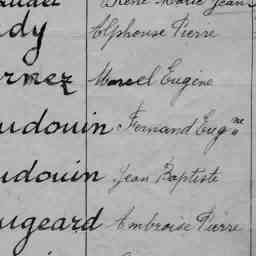 René Marie Jean
dy Alphonse Pierre
rnez Marcel Eugène
udouin Fernand Eug ne
udouin Jean Baptiste
ugeard Ambroise Pierre